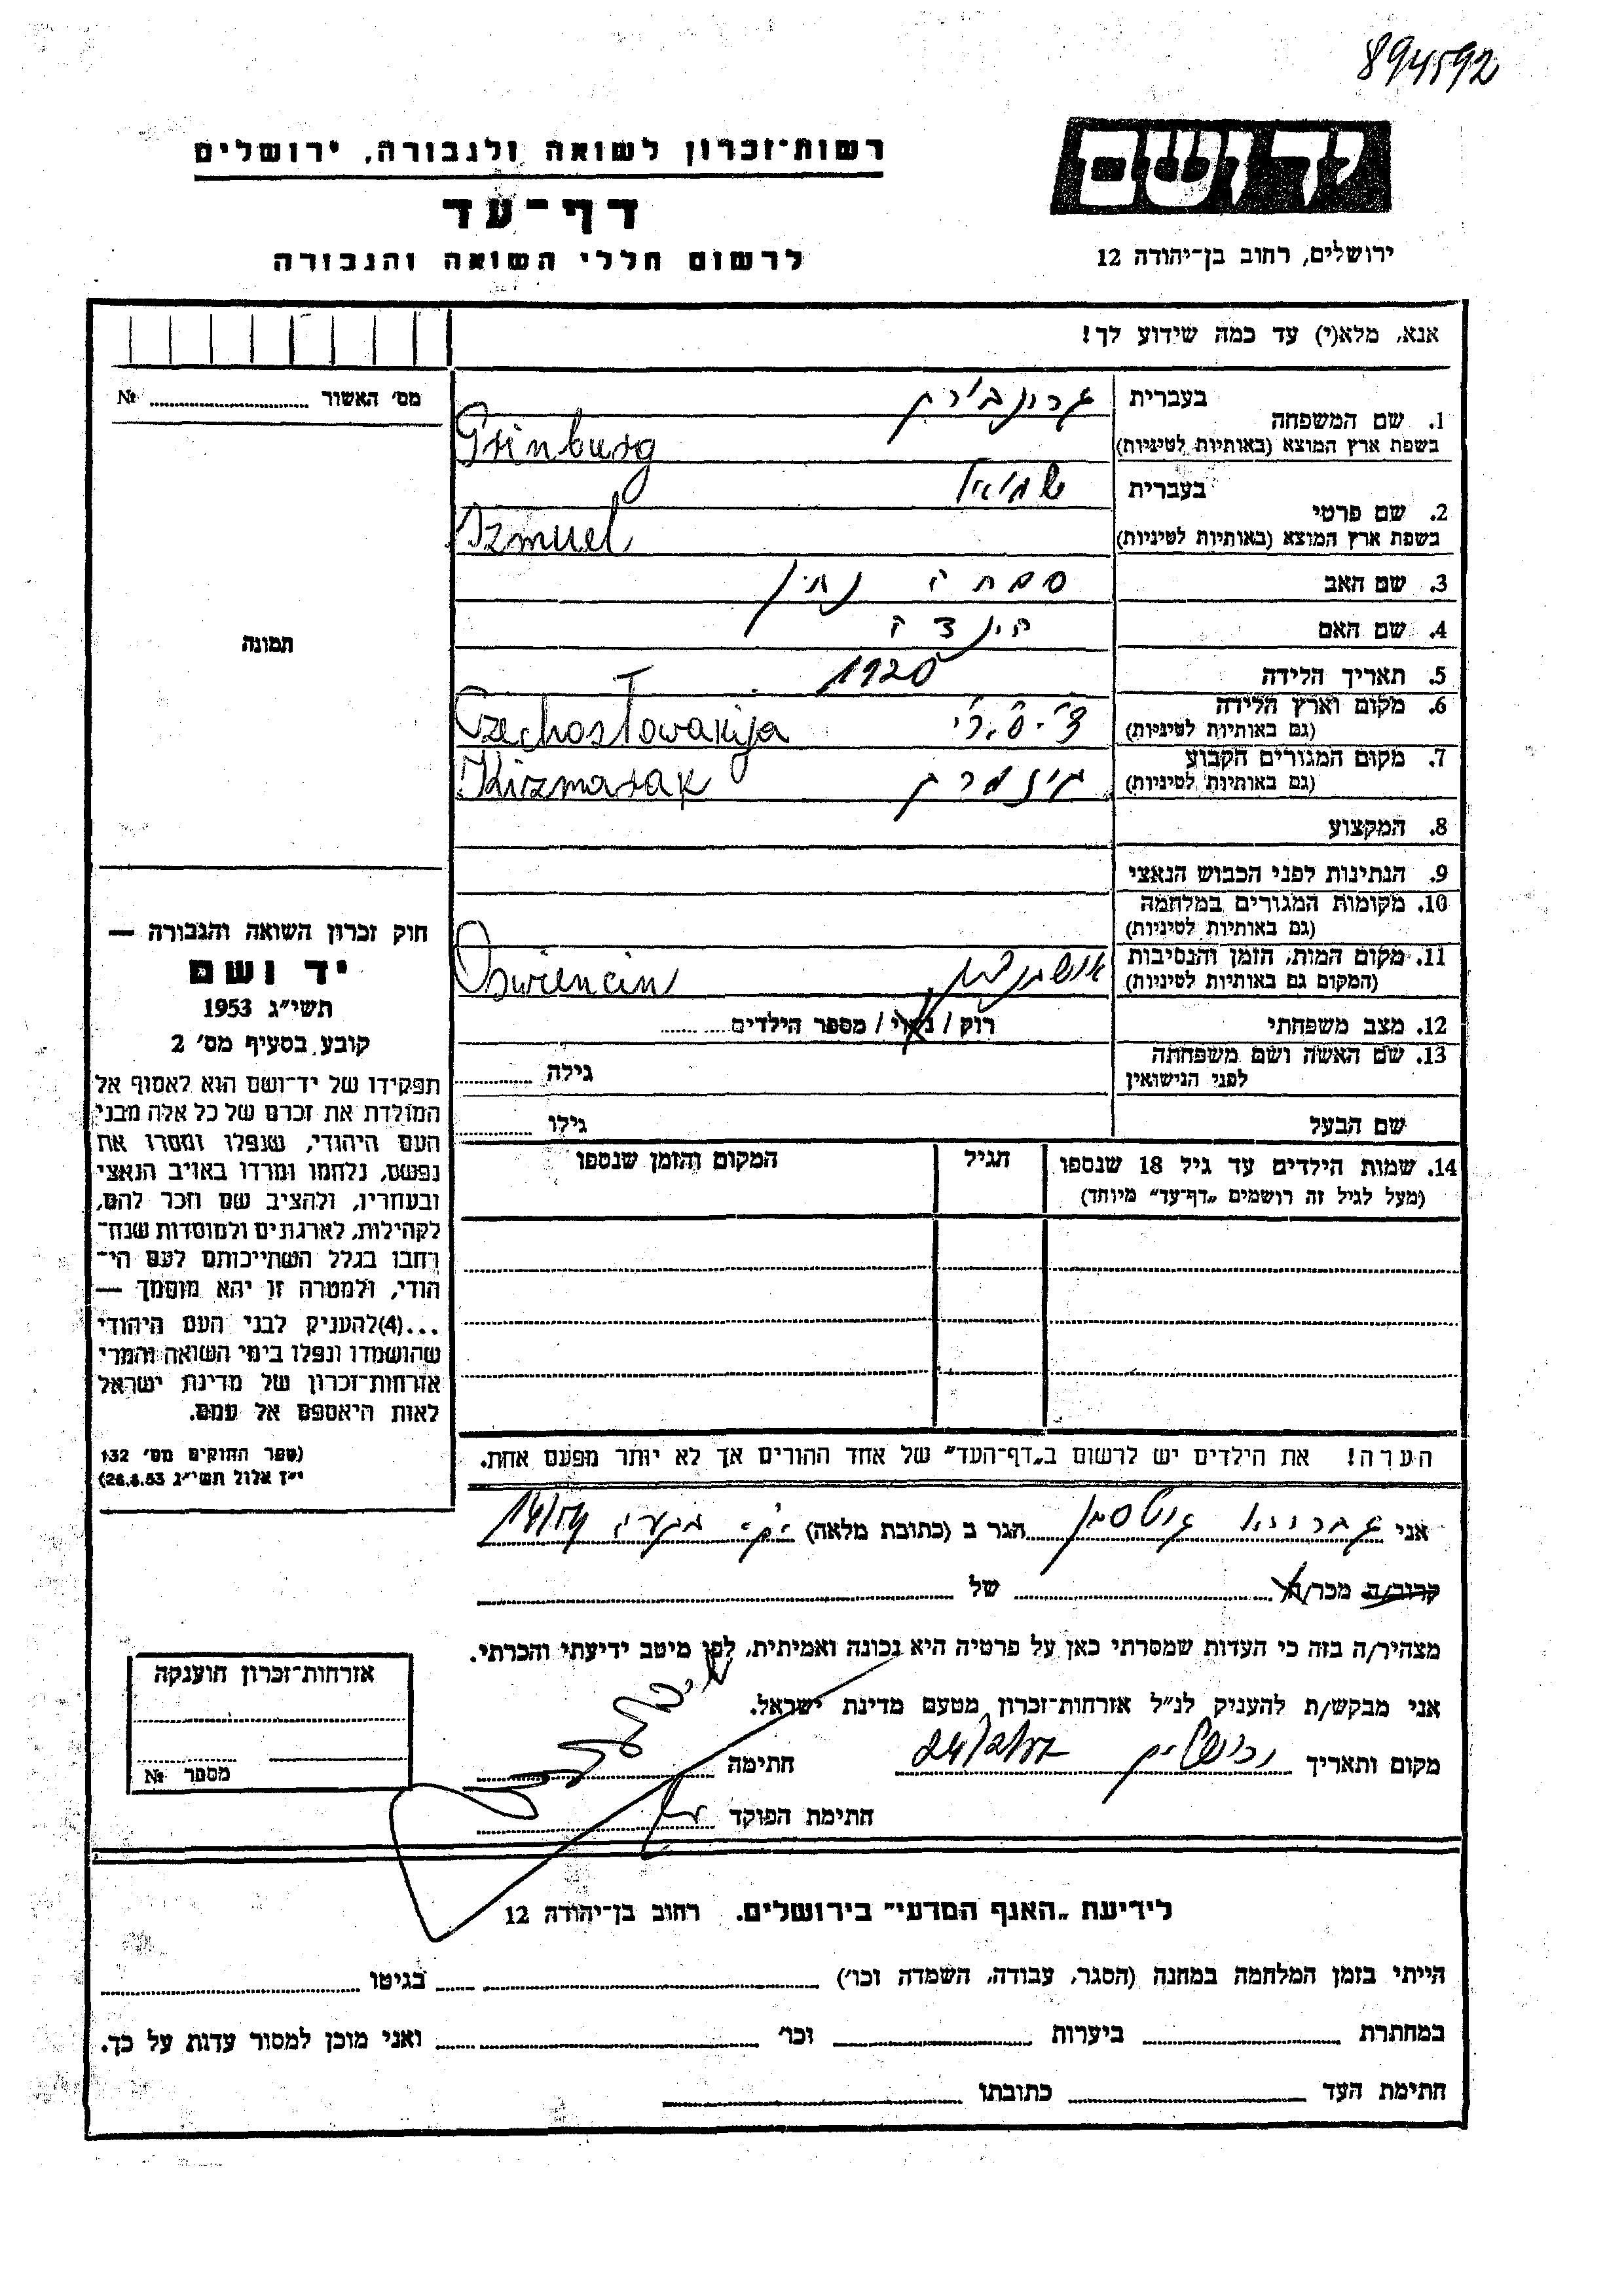 894592
רשות־זכרון לשואה ולגבורה, ירושלים
יד ושם
דף־עד
לרשום חללי השואה והגבורה
ירושלים, רחוב בן־יהודה 12
אנא, מלא(י) עד כמה שידוע לך!
מס׳ האשור № 
תמונה
1. שם המשפחה
בעברית
בשפת ארץ המוצא (באותיות לטיניות)
Grinburg
2. שם פרטי
בעברית שמואל
בשפת ארץ המוצא (באותיות לטיניות)
Szmuel
3. שם האב שמחה נתן
4. שם האם הינדה
5. תאריך הלידה 1920
6. מקום וארץ הלידה
(גם באותיות לטיניות)
Czechosłowakija
7. מקום המגורים הקבוע
(גם באותיות לטיניות)
Kizmarak
8. המקצוע
9. הנתינות לפני הכבוש הנאצי
10. מקומות המגורים במלחמה
(גם באותיות לטיניות)
11. מקום המות, הזמן והנסיבות
(המקום גם באותיות לטיניות)
Oswiencin
12. מצב משפחתי רוק / נשוי / מספר הילדים
13. שם האשה ושם משפחתה
לפני הנישואין
גילה
שם הבעל גילו
14. שמות הילדים עד גיל 18 שנספו
(מעל לגיל זה רושמים „דף־עד” מיוחד)
הגיל
המקום והזמן שנספו
חוק זכרון השואה והגבורה —
יד ושם
תשי״ג 1953
קובע בסעיף מס׳ 2
תפקידו של יד־ושם הוא לאסוף אל
המולדת את זכרם של כל אלה מבני
העם היהודי, שנפלו ומסרו את
נפשם, נלחמו ומרדו באויב הנאצי
ובעוזריו, ולהציב שם וזכר להם,
לקהילות, לארגונים ולמוסדות שנח־
רבו בגלל השתייכותם לעם הי־
הודי, ולמטרה זו יהא מוסמך —
...(4)להעניק לבני העם היהודי
שהושמדו ונפלו בימי השואה והמרי
אזרחות־זכרון של מדינת ישראל
לאות היאספם אל עמם.
(ספר החוקים מס׳ 132
י״ז אלול תשי״ג 28.8.53)
הערה! את הילדים יש לרשום ב„דף־העד” של אחד ההורים אך לא יותר מפעם אחת.
אני הגר ב (כתובת מלאה)
קרוב/ה מכר/ה של
מצהיר/ה בזה כי העדות שמסרתי כאן על פרטיה היא נכונה ואמיתית, לפי מיטב ידיעתי והכרתי.
אני מבקש/ת להעניק לנ״ל אזרחות־זכרון מטעם מדינת ישראל.
מקום ותאריך ירושלים חתימה
חתימת הפוקד
אזרחות־זכרון הוענקה
מספר №
לידיעת „האגף המדעי” בירושלים. רחוב בן־יהודה 12
הייתי בזמן המלחמה במחנה (הסגר, עבודה, השמדה וכו׳) בגיטו
במחתרת ביערות וכו׳ ואני מוכן למסור עדות על כך.
חתימת העד כתובתו